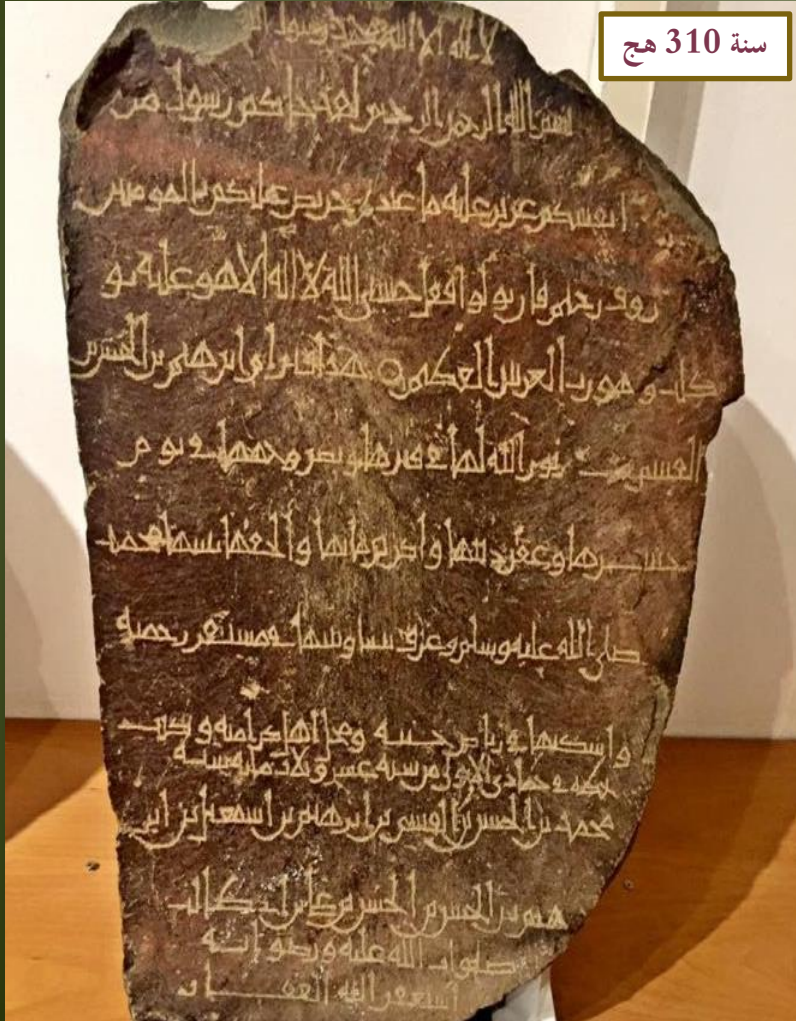 سنة 310 هج
لا اله الا الله محمد رسول الله
بسم الله الرحمن الرحيم لقد جاكم رسول من
انفسكم عزيز عليه ما عنتم حريص عليكم بالمومنين
روف رحيم فان تولوا فقل حسبي الله لا اله الا هو عليه تو
كلت وهو رب العرش العظيم هذا قبر ابرهيم بن الحسن بن
القسم نور الله لها في قبرها وبيض وجهها في يوم
حشرها وغفر ذنبها واكرم مابها والحقها بنبيها محمد
صلى الله عليه وسلم وعرف بينها في مستقر رحمته
واسكنها في رياض جنته ومحل اهل كرامته
بمكة في جمادى الاول من سنة عشر وثلاث مايه
محمد بن الحسن بن القسم بن ابرهيم بن اسمعيل بن ابر
هيم بن الحسن بن الحسن بن علي بن ابي طالب
صلوات الله عليه ورضوانه
استغفر الله الغفار